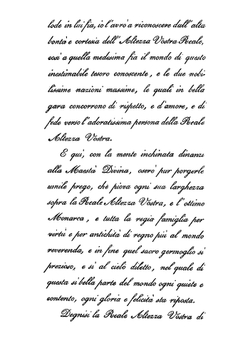 lode in lui fia, io l'avrò a riconoscere dall' alta
bontà e cortesia dell' Altezza Vostra Reale,
così a quella medesima fia il mondo di questo
inestimabile tesoro conoscente, e le due nobi-
lissime nazioni massime, le quali in bella
gara concorrono di rispetto, e d'amore, e di
fede verso l'adoratissima persona della Reale
Altezza Vostra.
E qui, con la mente inchinata dinanzi
alla Maestà Divina, oserò pur porgerle
umile prego, che piova ogni sua larghezza
sopra la Reale Altezza Vostra, e l'ottimo
Monarca, e tutta la regia famiglia per
virtù e per antichità di regno più al mondo
reverenda, e in fine quel sacro germoglio sì
prezioso, e sì al cielo diletto, nel quale di
questa sì bella parte del mondo ogni quiete e
contento, ogni gloria e felicità sta riposta.
Degnisi la Reale Altezza Vostra di